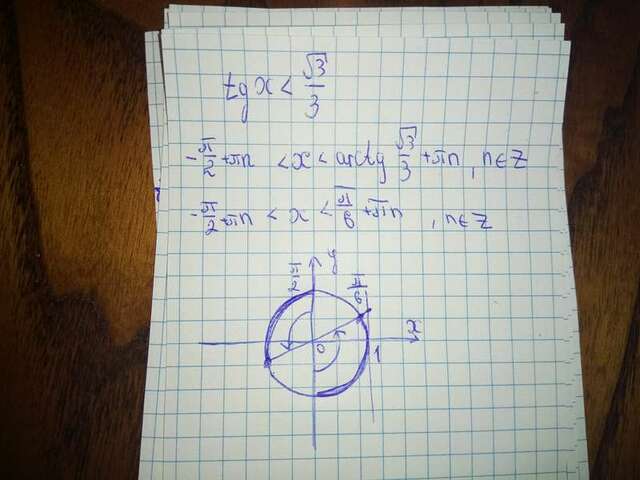 tg x < √3/3
-π/2 + πn < x < arctg √3/3 + πn, n∈Z
-π/2 + πn < x < π/6 + πn, n∈Z
y
π/2
π/6
0
1
x